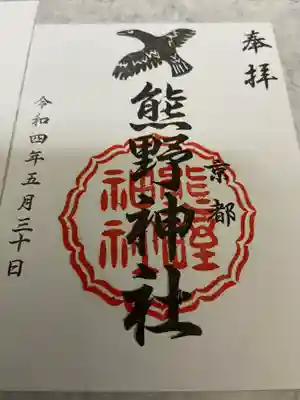 奉拝
京都
熊野神社
熊野
神社
令和四年五月三十日